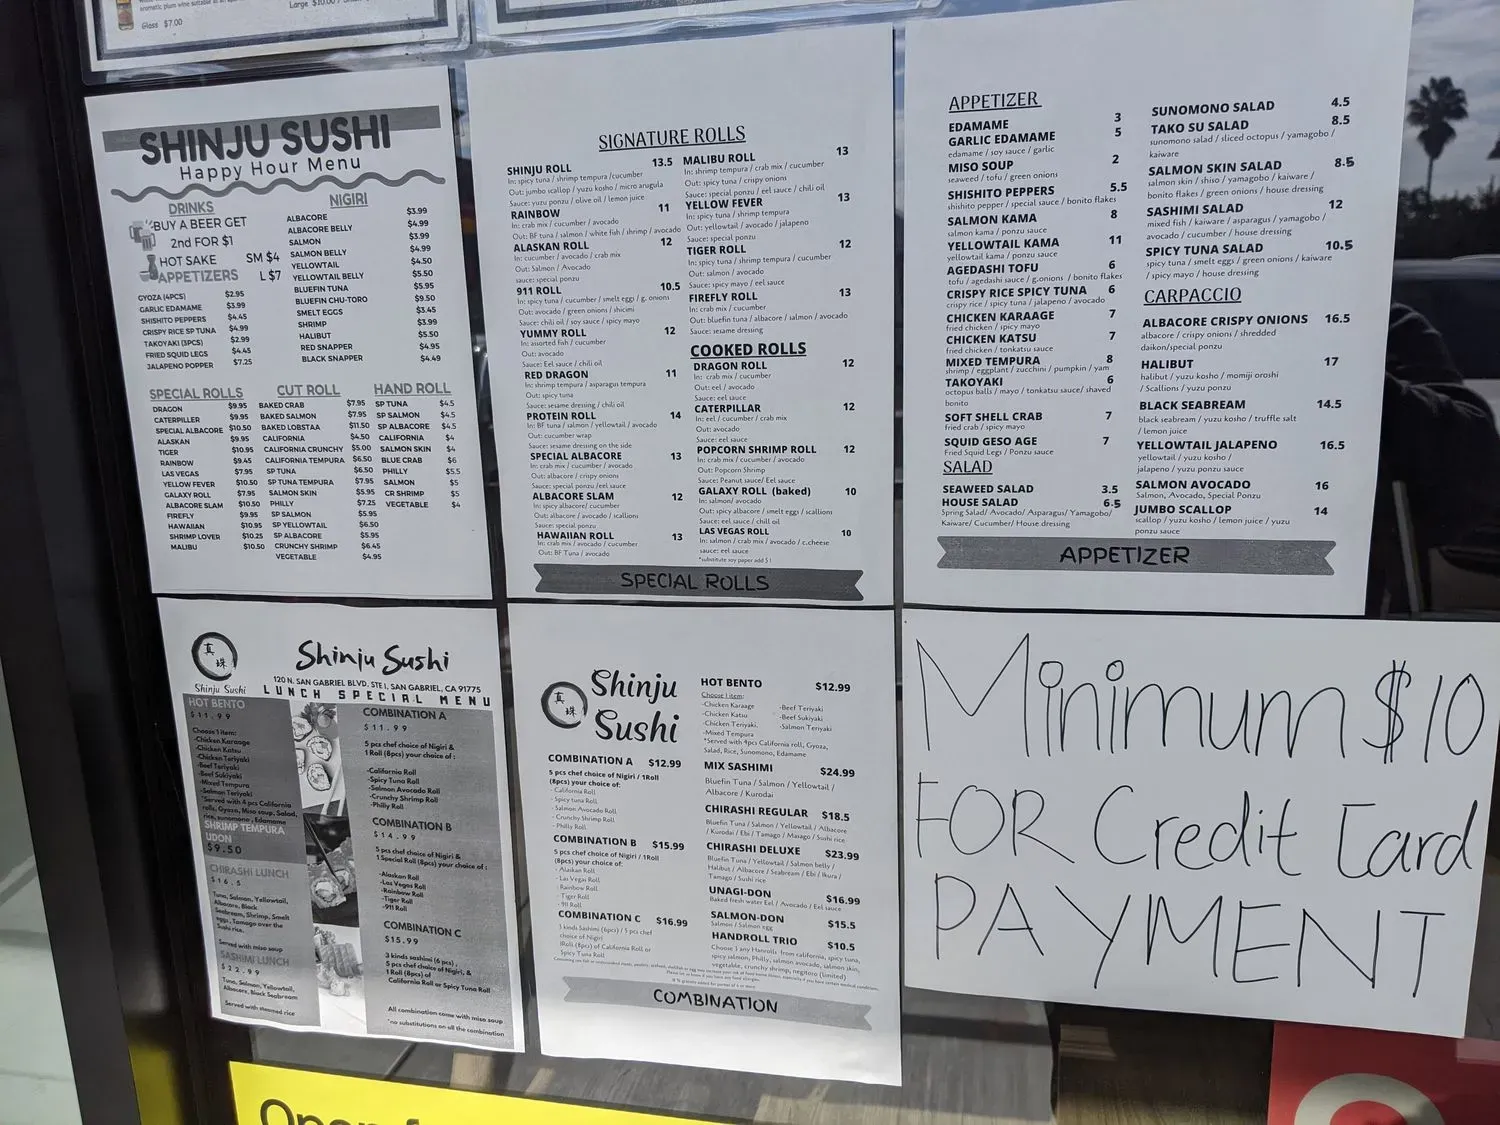 aromatic plum wine suitable
Glass $7.00
Large $10.00
SHINJU SUSHI
Happy Hour Menu
DRINKS
BUY A BEER GET
2nd FOR $1
HOT SAKE SM $4
L $7
APPETIZERS
GYOZA (4PCS) $2.95
GARLIC EDAMAME $3.99
SHISHITO PEPPERS $4.45
CRISPY RICE SP TUNA $4.99
TAKOYAKI (3PCS) $2.99
FRIED SQUID LEGS $4.45
JALAPENO POPPER $7.25
NIGIRI
ALBACORE $3.99
ALBACORE BELLY $4.99
SALMON $3.99
SALMON BELLY $4.99
YELLOWTAIL $4.50
YELLOWTAIL BELLY $5.50
BLUEFIN TUNA $5.95
BLUEFIN CHU-TORO $9.50
SMELT EGGS $3.45
SHRIMP $3.99
HALIBUT $5.50
RED SNAPPER $4.95
BLACK SNAPPER $4.49
SPECIAL ROLLS
DRAGON $9.95
CATERPILLER $9.95
SPECIAL ALBACORE $10.50
ALASKAN $9.95
TIGER $10.95
RAINBOW $9.45
LAS VEGAS $7.95
YELLOW FEVER $10.50
GALAXY ROLL $7.95
ALBACORE SLAM $10.50
FIREFLY $9.95
HAWAIIAN $10.95
SHRIMP LOVER $10.25
MALIBU $10.50
CUT ROLL
BAKED CRAB $7.95
BAKED SALMON $7.95
BAKED LOBSTAA $11.50
CALIFORNIA $4.50
CALIFORNIA CRUNCHY $5.00
CALIFORNIA TEMPURA $6.50
SP TUNA $6.50
SP TUNA TEMPURA $7.95
SALMON SKIN $5.95
PHILLY $7.25
SP SALMON $5.95
SP YELLOWTAIL $6.50
SP ALBACORE $5.95
CRUNCHY SHRIMP $6.45
VEGETABLE $4.95
HAND ROLL
SP TUNA $4.5
SP SALMON $4.5
SP ALBACORE $4.5
CALIFORNIA $4
SALMON SKIN $4
BLUE CRAB $6
PHILLY $5.5
SALMON $5
CR SHRIMP $5
VEGETABLE $4
SIGNATURE ROLLS
SHINJU ROLL 13.5
In: spicy tuna / shrimp tempura /cucumber
Out: jumbo scallop / yuzu kosho / micro arugula
Sauce: yuzu ponzu / olive oil / lemon juice
RAINBOW 11
In: crab mix / cucumber / avocado
Out: BF tuna / salmon / white fish / shrimp / avocado
ALASKAN ROLL 12
In: cucumber / avocado / crab mix
Out: Salmon / Avocado
sauce: special ponzu
911 ROLL 10.5
In: spicy tuna / cucumber / smelt eggs / g. onions
Out: avocado / green onions / shicimi
Sauce: chili oil / soy sauce / spicy mayo
YUMMY ROLL 12
In: assorted fish / cucumber
Out: avocado
Sauce: Eel sauce / chili oil
RED DRAGON 11
In: shrimp tempura / asparagus tempura
Out: spicy tuna
Sauce: sesame dressing / chili oil
PROTEIN ROLL 14
In: BF tuna / salmon / yellowtail / avocado
Out: cucumber wrap
Sauce: sesame dressing on the side
SPECIAL ALBACORE 13
In: crab mix / cucumber / avocado
Out: albacore / crispy onions
Sauce: special ponzu /eel sauce
ALBACORE SLAM 12
In: spicy albacore/ cucumber
Out: albacore / avocado / scallions
Sauce: special ponzu
HAWAIIAN ROLL 13
In: crab mix / avocado / cucumber
Out: BF Tuna / avocado
MALIBU ROLL 13
In: shrimp tempura / crab mix / cucumber
Out: spicy tuna / crispy onions
Sauce: special ponzu / eel sauce / chili oil
YELLOW FEVER 13
In: spicy tuna / shrimp tempura
Out: yellowtail / avocado / jalapeno
Sauce: special ponzu
TIGER ROLL 12
In: spicy tuna / shrimp tempura / cucumber
Out: salmon / avocado
Sauce: spicy mayo / eel sauce
FIREFLY ROLL 13
In: crab mix / cucumber
Out: bluefin tuna / albacore / salmon / avocado
Sauce: sesame dressing
COOKED ROLLS
DRAGON ROLL 12
In: crab mix / cucumber
Out: eel / avocado
Sauce: eel sauce
CATERPILLAR 12
In: eel / cucumber / crab mix
Out: avocado
Sauce: eel sauce
POPCORN SHRIMP ROLL 12
In: crab mix / cucumber / avocado
Out: Popcorn Shrimp
Sauce: Peanut sauce/ Eel sauce
GALAXY ROLL (baked) 10
In: salmon/ avocado
Out: spicy albacore / smelt eggs / scallions
Sauce: eel sauce / chili oil
LAS VEGAS ROLL 10
In: salmon / crab mix / avocado / c.cheese
sauce: eel sauce
*substitute soy paper add $1
SPECIAL ROLLS
APPETIZER
EDAMAME 3
GARLIC EDAMAME 5
edamame / soy sauce / garlic
MISO SOUP 2
seaweed / tofu / green onions
SHISHITO PEPPERS 5.5
shishito pepper / special sauce / bonito flakes
SALMON KAMA 8
salmon kama / ponzu sauce
YELLOWTAIL KAMA 11
yellowtail kama / ponzu sauce
AGEDASHI TOFU 6
tofu / agedashi sauce / g.onions / bonito flakes
CRISPY RICE SPICY TUNA 6
crispy rice / spicy tuna / jalapeno / avocado
CHICKEN KARAAGE 7
fried chicken / spicy mayo
CHICKEN KATSU 7
fried chicken / tonkatsu sauce
MIXED TEMPURA 8
shrimp / eggplant / zucchini / pumpkin / yam
TAKOYAKI 6
octopus balls / mayo / tonkatsu sauce/ shaved
bonito
SOFT SHELL CRAB 7
fried crab / spicy mayo
SQUID GESO AGE 7
Fried Squid Legs / Ponzu sauce
SALAD
SEAWEED SALAD 3.5
HOUSE SALAD 6.5
Spring Salad/ Avocado/ Asparagus/ Yamagobo/
Kaiware/ Cucumber/ House dressing
SUNOMONO SALAD 4.5
TAKO SU SALAD 8.5
sunomono salad / sliced octopus / yamagobo /
kaiware
SALMON SKIN SALAD 8.5
salmon skin / shiso / yamagobo / kaiware /
bonito flakes / green onions / house dressing
SASHIMI SALAD 12
mixed fish / kaiware / asparagus / yamagobo /
avocado / cucumber / house dressing
SPICY TUNA SALAD 10.5
spicy tuna / smelt eggs / green onions / kaiware
/ spicy mayo / house dressing
CARPACCIO
ALBACORE CRISPY ONIONS 16.5
albacore / crispy onions / shredded
daikon/special ponzu
HALIBUT 17
halibut / yuzu kosho / momiji oroshi
/ Scallions / yuzu ponzu
BLACK SEABREAM 14.5
black seabream / yuzu kosho / truffle salt
/ lemon juice
YELLOWTAIL JALAPENO 16.5
yellowtail / yuzu kosho /
jalapeno / yuzu ponzu sauce
SALMON AVOCADO 16
Salmon, Avocado, Special Ponzu
JUMBO SCALLOP 14
scallop / yuzu kosho / lemon juice / yuzu
ponzu sauce
APPETIZER
真珠
Shinju Sushi
Shinju Sushi
120 N. SAN GABRIEL BLVD. STE I, SAN GABRIEL, CA 91775
LUNCH SPECIAL MENU
HOT BENTO
$11.99
Choose 1 item:
-Chicken Karaage
-Chicken Katsu
-Chicken Teriyaki
-Beef Teriyaki
-Beef Sukiyaki
-Mixed Tempura
-Salmon Teriyaki
*Served with 4 pcs California
rolls, Gyoza, Miso soup, Salad,
rice, sunomono, Edamame
SHRIMP TEMPURA
UDON
$9.50
CHIRASHI LUNCH
$16.5
Tuna, Salmon, Yellowtail,
Albacore, Black
Seabream, Shrimp, Smelt
eggs, Tamago over the
Sushi rice.
Served with miso soup
SASHIMI LUNCH
$22.99
Tuna, Salmon, Yellowtail,
Albacore, Black Seabream
Served with steamed rice
COMBINATION A
$11.99
5 pcs chef choice of Nigiri &
1 Roll (8pcs) your choice of :
-California Roll
-Spicy Tuna Roll
-Salmon Avocado Roll
-Crunchy Shrimp Roll
-Philly Roll
COMBINATION B
$14.99
5 pcs chef choice of Nigiri &
1 Special Roll (8pcs) your choice of :
-Alaskan Roll
-Las Vegas Roll
-Rainbow Roll
-Tiger Roll
-911 Roll
COMBINATION C
$15.99
3 kinds sashimi (6 pcs) ,
5 pcs chef choice of Nigiri, &
1 Roll (8pcs) of
California Roll or Spicy Tuna Roll
All combination come with miso soup
*no substitutions on all the combination
真珠
Shinju
Sushi
COMBINATION A $12.99
5 pcs chef choice of Nigiri / 1Roll
(8pcs) your choice of:
- California Roll
- Spicy tuna Roll
- Salmon Avocado Roll
- Crunchy Shrimp Roll
- Philly Roll
COMBINATION B $15.99
5 pcs chef choice of Nigiri / 1Roll
(8pcs) your choice of:
- Alaskan Roll
- Las Vegas Roll
- Rainbow Roll
- Tiger Roll
- 911 Roll
COMBINATION C $16.99
3 kinds Sashimi (6pcs) / 5 pcs chef
choice of Nigiri
1Roll (8pcs) of California Roll or
Spicy Tuna Roll
HOT BENTO $12.99
Choose 1 item:
-Chicken Karaage -Beef Teriyaki
-Chicken Katsu -Beef Sukiyaki
-Chicken Teriyaki -Salmon Teriyaki
-Mixed Tempura
*Served with 4pcs California roll, Gyoza,
Salad, Rice, Sunomono, Edamame
MIX SASHIMI $24.99
Bluefin Tuna / Salmon / Yellowtail /
Albacore / Kurodai
CHIRASHI REGULAR $18.5
Bluefin Tuna / Salmon / Yellowtail / Albacore
/ Kurodai / Ebi / Tamago / Masago / Sushi rice
CHIRASHI DELUXE $23.99
Bluefin Tuna / Yellowtail / Salmon belly /
Halibut / Albacore / Seabream / Ebi / Ikura /
Tamago / Sushi rice
UNAGI-DON $16.99
Baked fresh water Eel / Avocado / Eel sauce
SALMON-DON $15.5
Salmon / Salmon egg
HANDROLL TRIO $10.5
Choose 3 any Hanrolls from california, spicy tuna,
spicy salmon, Philly, salmon avocado, salmon skin,
vegetable, crunchy shrimp, negitoro (limited)
COMBINATION
Minimum $10
FOR Credit Card
PAYMENT
Open f